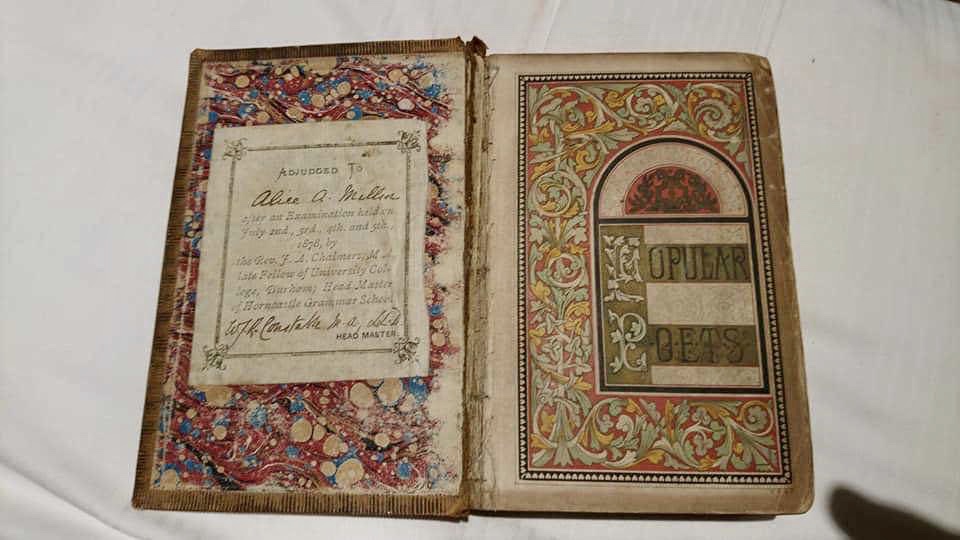 ADJUDGED TO
Alice A.
after an Examination held on
July 2nd., 3rd., 4th. and 5th.,
1878, by
the Rev. J. A. Chalmers, M.A.,
late Fellow of University Col-
lege, Durham; Head Master
of Horncastle Grammar School
Constable M.A.,
HEAD MASTER.
POPULAR
POETS